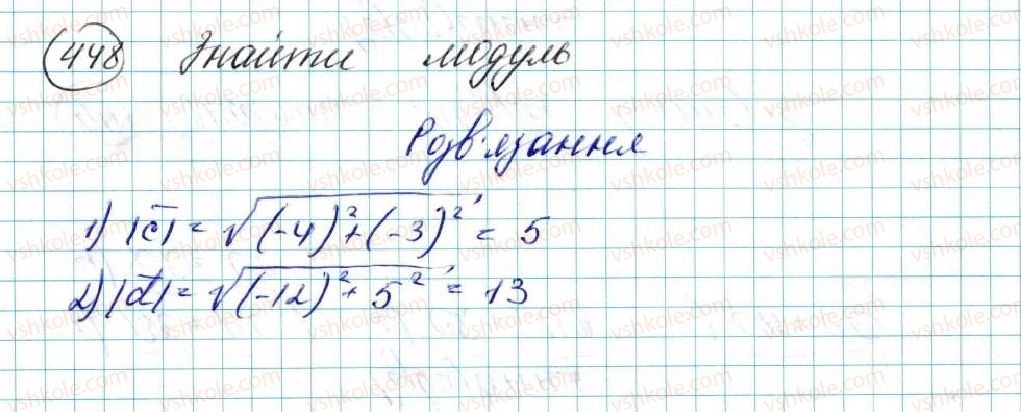 448 Знайти модуль
Розв'язання
1) |c̄| = √((-4)² + (-3)²) = 5
2) |d̄| = √((-12)² + 5²) = 13
vshkole.com